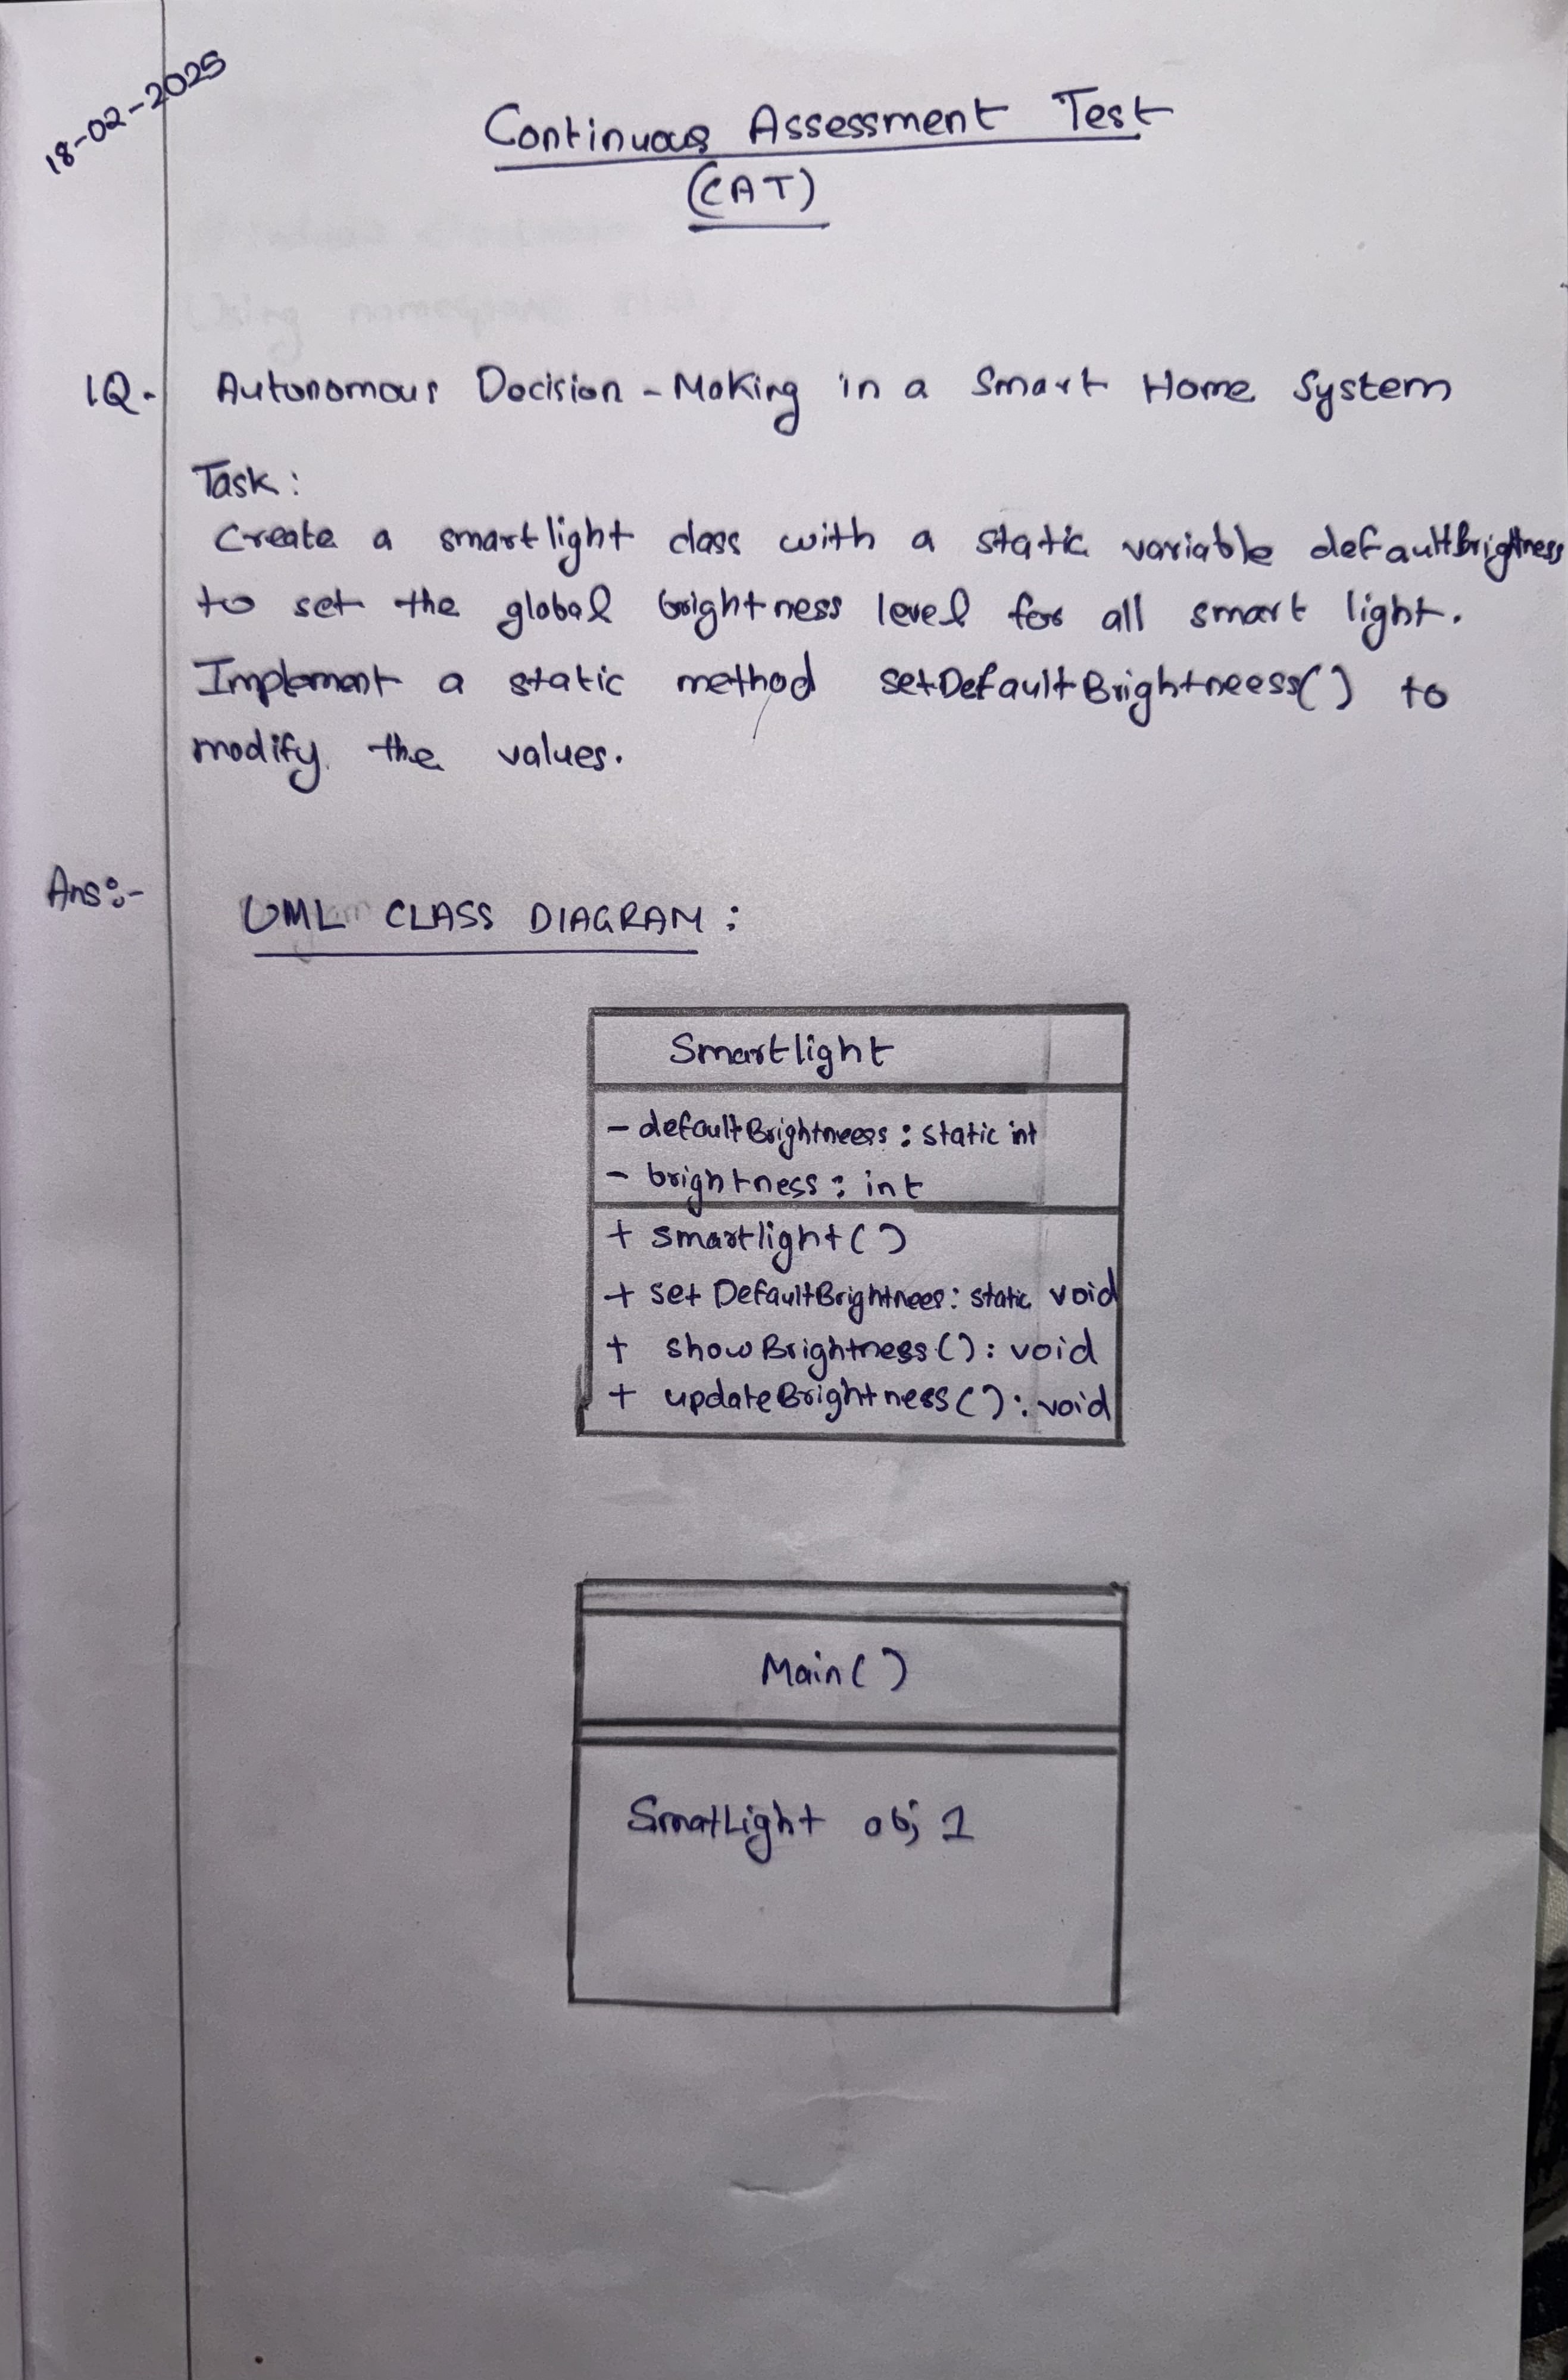 18-02-2025
Continuous Assessment Test
(CAT)
1Q. Autonomous Decision-Making in a Smart Home System
Task:
Create a smartlight class with a static variable defaultBrightness
to set the global brightness level for all smart light.
Implement a static method setDefaultBrightneess() to
modify the values.
Ans:-
UML CLASS DIAGRAM:
Smartlight
- defaultBrightneess : static int
- brightness : int
+ smartlight()
+ set DefaultBrightnees: static void
+ showBrightness(): void
+ updateBrightness(): void
Main()
SmatLight obj 1